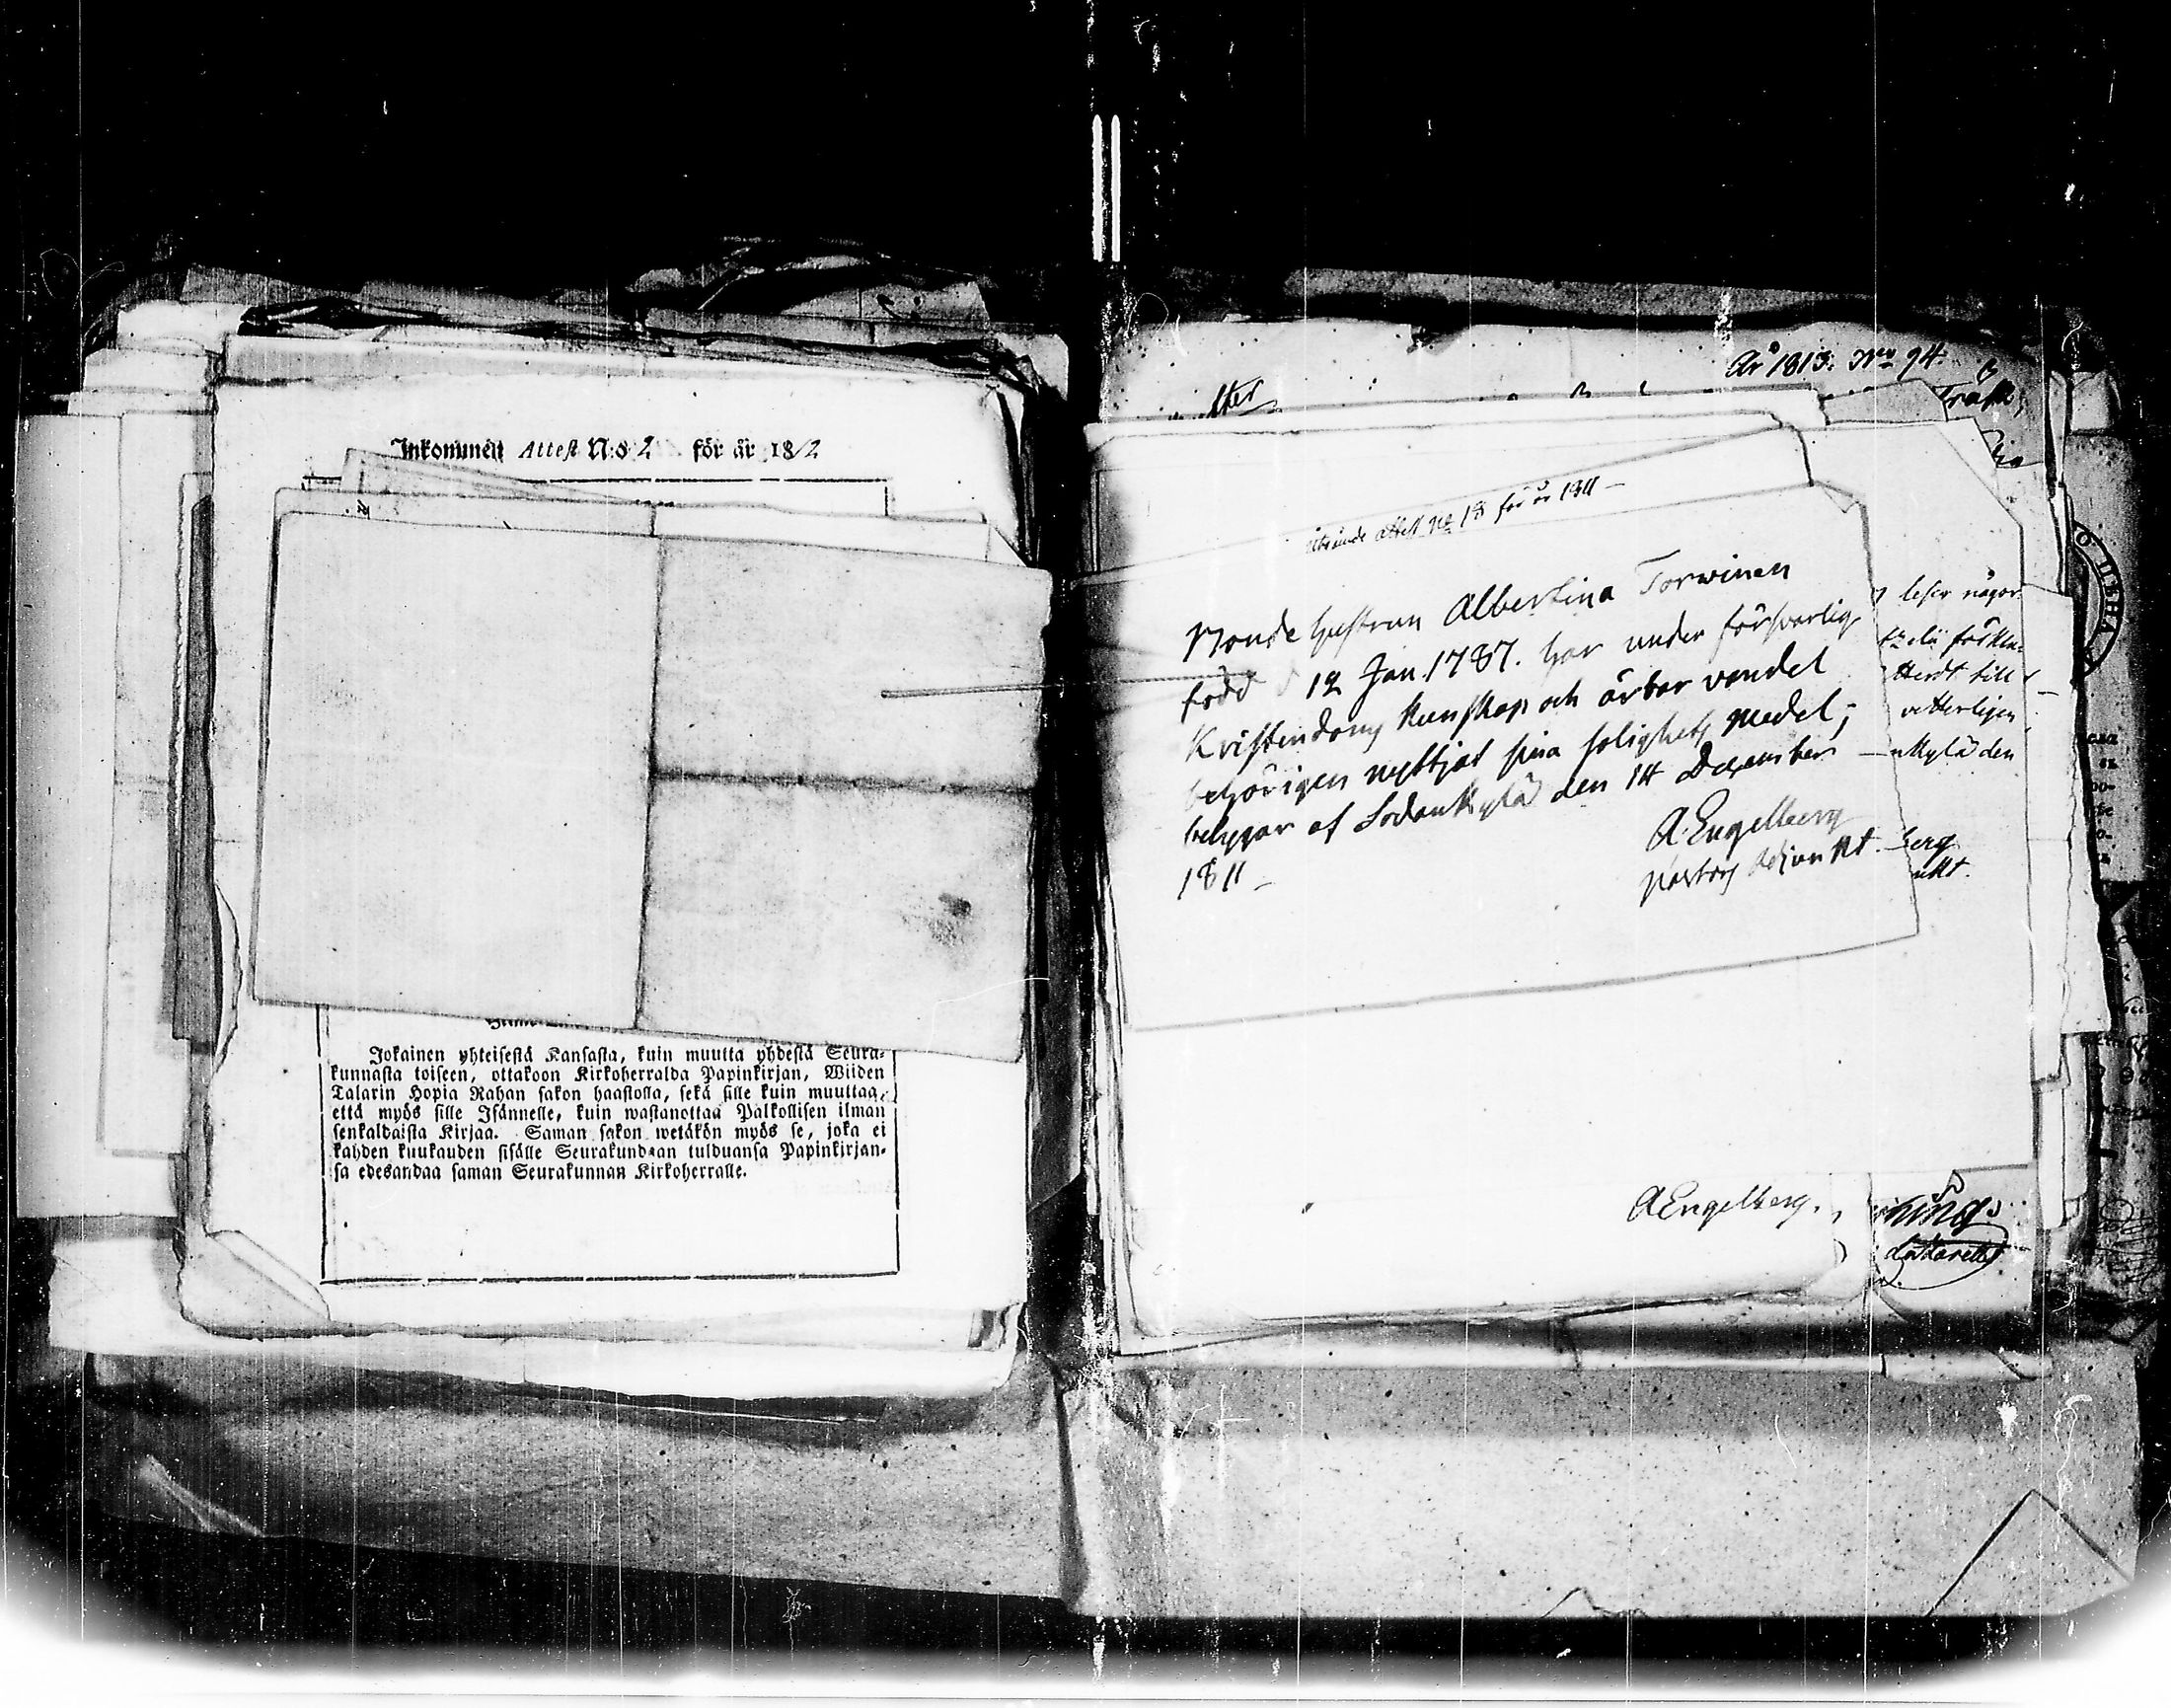 Inkommen Attest N:o 2 för år 1812
Jokainen yhteisestä Kansasta, kuin muutta yhdestä Seura-
kunnasta toiseen, ottakoon Kirkoherralda Papinkirjan, Wiiden
Talarin Hopia Rahan sakon haastolla, sekä sille kuin muuttaa,
että myös sille Isännelle, kuin wastanottaa Palkollisen ilman
senkaldaista Kirjaa. Saman sakon wetäkön myös se, joka ei
kahden kuukauden sisälle Seurakundaan tulduansa Papinkirjan-
sa edesandaa saman Seurakunnan Kirkoherralle.
År 1813. Nro 94.
attest No 18 för år 1811 –
Bonde hustrun Albertina Torwinen
född d 12 Jan. 1787. har under försvarlig
Kristendoms kunskap och ärbar vandel
behörigen nyttjat sina salighets medel;
betygar af Sodankylä den 14 December
1811 –
A. Engelberg
pastors Adjunkt.
leser någor
vetterligen
nkylä den
berg
nkt.
A Engelberg.